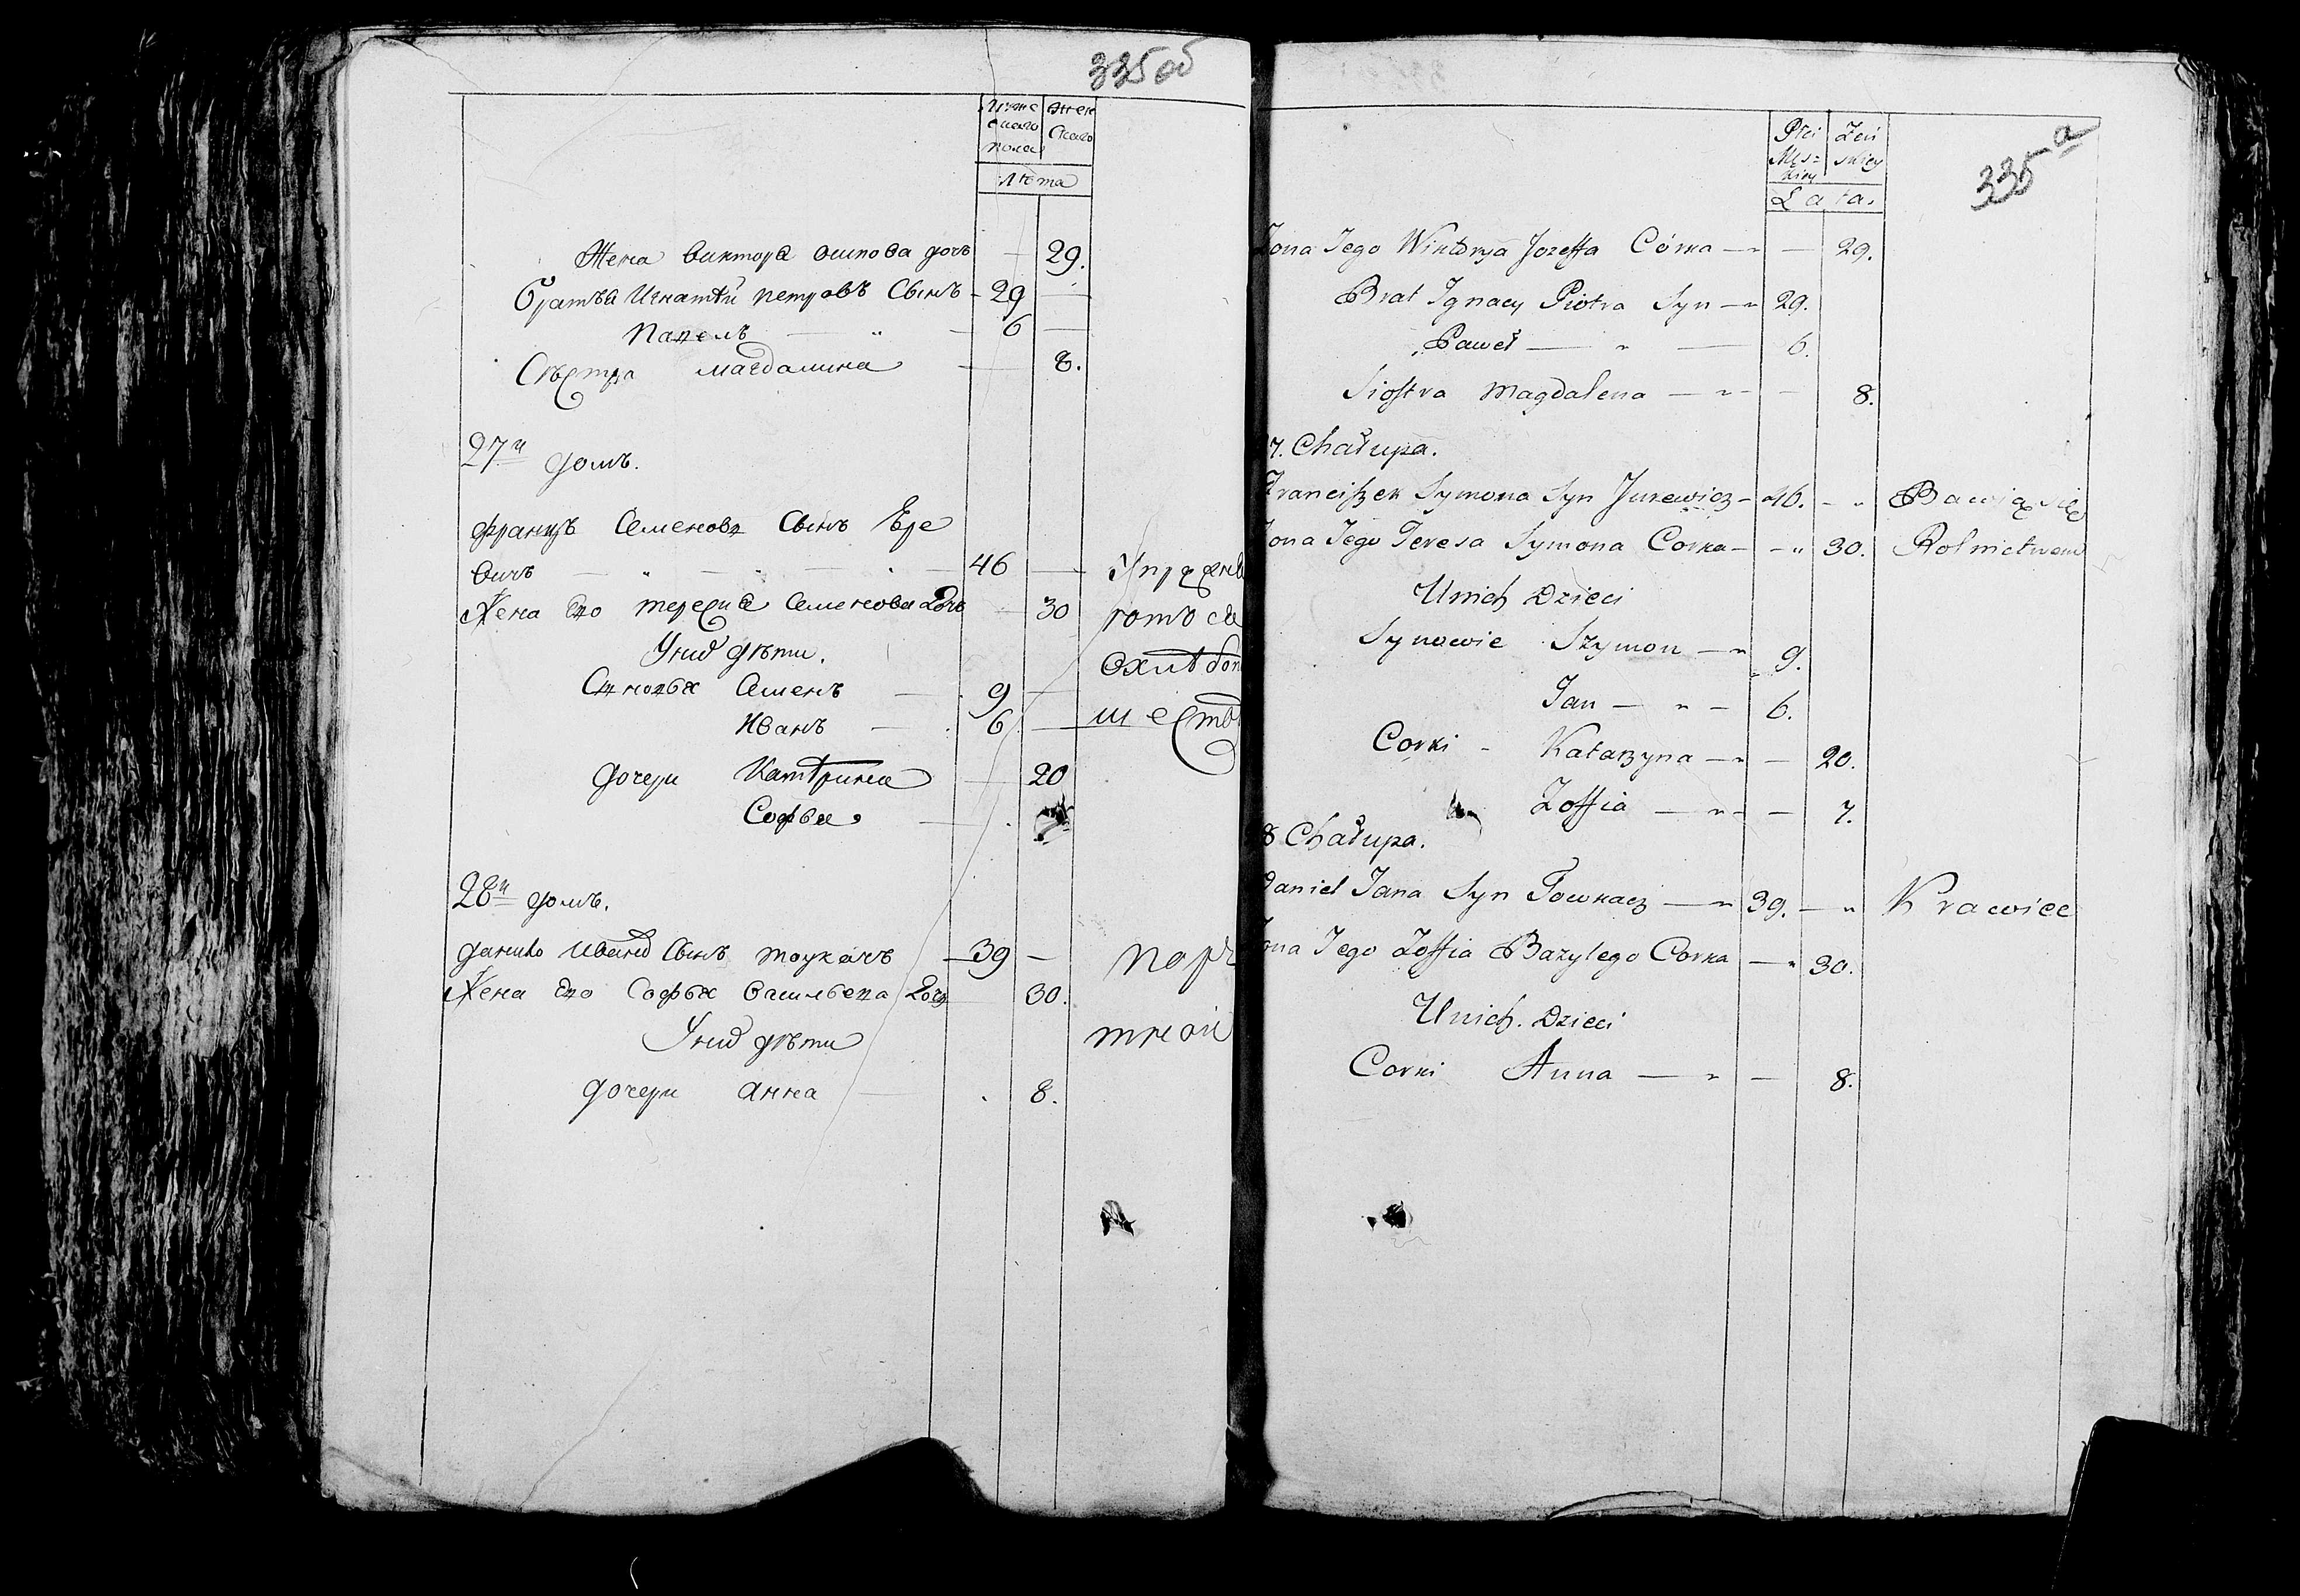 335 об
Мужескаго пола
Женскаго
Лѣта
Жена Виктора Осипова дочь — 29.
Братья Игнатій Петровъ Сынъ - 29 —
Павелъ — " — 6 —
Сѣстра Магдалина — 8.
27й домъ.
Францъ Семеновъ Сынъ Ере
вичъ — " — " — 46 —
Жена Его Тересиа Семенова Дочь — 30
У нихъ дѣти.
Сыновья Семенъ — 9 —
Иванъ — 6 —
дочери Катѣрина — 20
Софья —
28й домъ.
Данило Иванов Сынъ Тоукачъ — 39 —
Жена Его Софья Васильева Дочь 30.
У нихъ дѣти
дочери Анна — 8.
335 а
Płci Męs=kiey
Żeńskiey
Lata.
Żona Jego Wiktorya Jozeffa Córka — " — 29.
Brat Ignacy Piotra Syn — " 29.
Paweł — " — 6.
Siostra Magdalena — " — 8.
7. Chałupa.
Franciszek Symona Syn Jurewicz - 46. - " Bawią się
Żona Jego Teresa Symona Corka — - " 30. Rolnictwem
U nich Dzieci
Synowie Szymon — " 9.
Jan — " — 6.
Corki - Katarzyna — " — 20.
Zoffia — " — 7.
8 Chałupa.
Daniel Jana Syn Towkacz — " 39. — " Krawiec
Żona Jego Zoffia Bazylego Corka — " 30.
U nich. Dzieci
Corki Anna — " — 8.